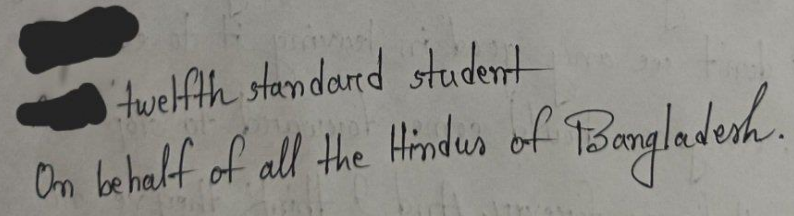 twelfth standard student
On behalf of all the Hindus of Bangladesh.